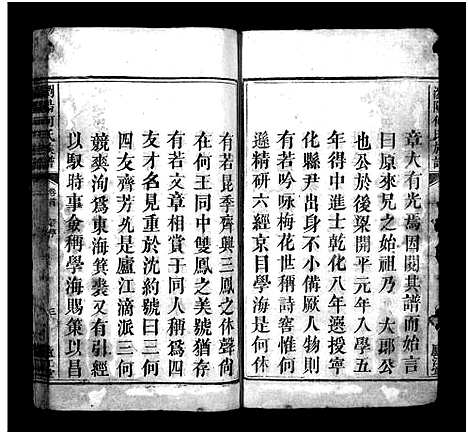 章大有光焉因閱其譜而始言
曰原來兄之始祖乃 大郎公
也公於後梁開平元年入學五
年得中進士乾化八年選授寧
化縣尹出身不小儔厥人物則
有若吟咏梅花世稱詩窖惟何
遜精研六經京目學海是何休
有若昆季齊興三鳳之休聲尚
在何王同中雙鳳之美號猶存
有若文章相賞于同人稱為四
友才名見重於沈約號曰三何
四友齊芳允是廬江滴派三何
競爽洵為東海箕裘又有引經
以馭時事僉稱學海賜策以昌
瀏陽何氏族譜
卷首
三